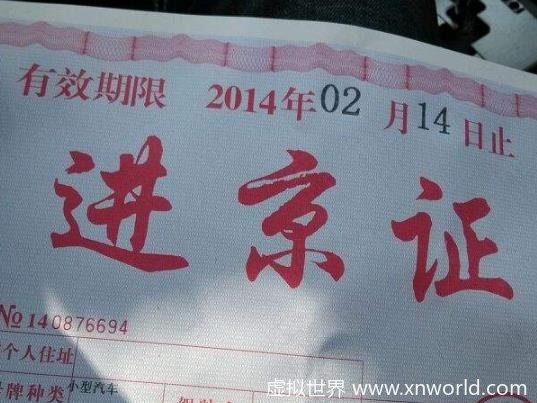 有效期限 2014年02月14日止
进京证
№ 140876694
个人住址
牌种类 小型汽车
虚拟世界 www.xnworld.com